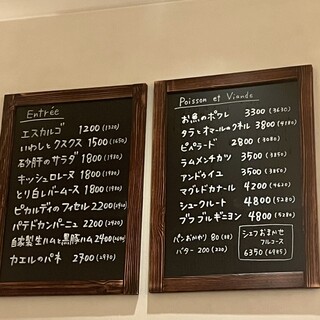 Entrée
エスカルゴ 1200 (1320)
いわしとクスクス 1500 (1650)
砂肝のサラダ 1800 (1980)
キッシュロレーヌ 1800 (1980)
とり白レバームース 1800 (1980)
ピカルディのフィセル 2200
パテドカンパーニュ 2200
自家製生ハムと黒豚ハム 2400
カエルのパネ 2700 (2970)
Poisson et Viande
お魚のポワレ 3300 (3630)
タラとオマールのクネル 3800 (4180)
ピペラード 2800 (3080)
ラムメンチカツ 3500 (3850)
アンドゥイユ 3500 (3850)
マグレドカナール 4200 (4620)
シュークルート 4800 (5280)
ブフブルギニヨン 4800 (5280)
パンおかわり 80 (88)
バター 200 (220)
シェフおまかせ
フルコース
6350 (6985)